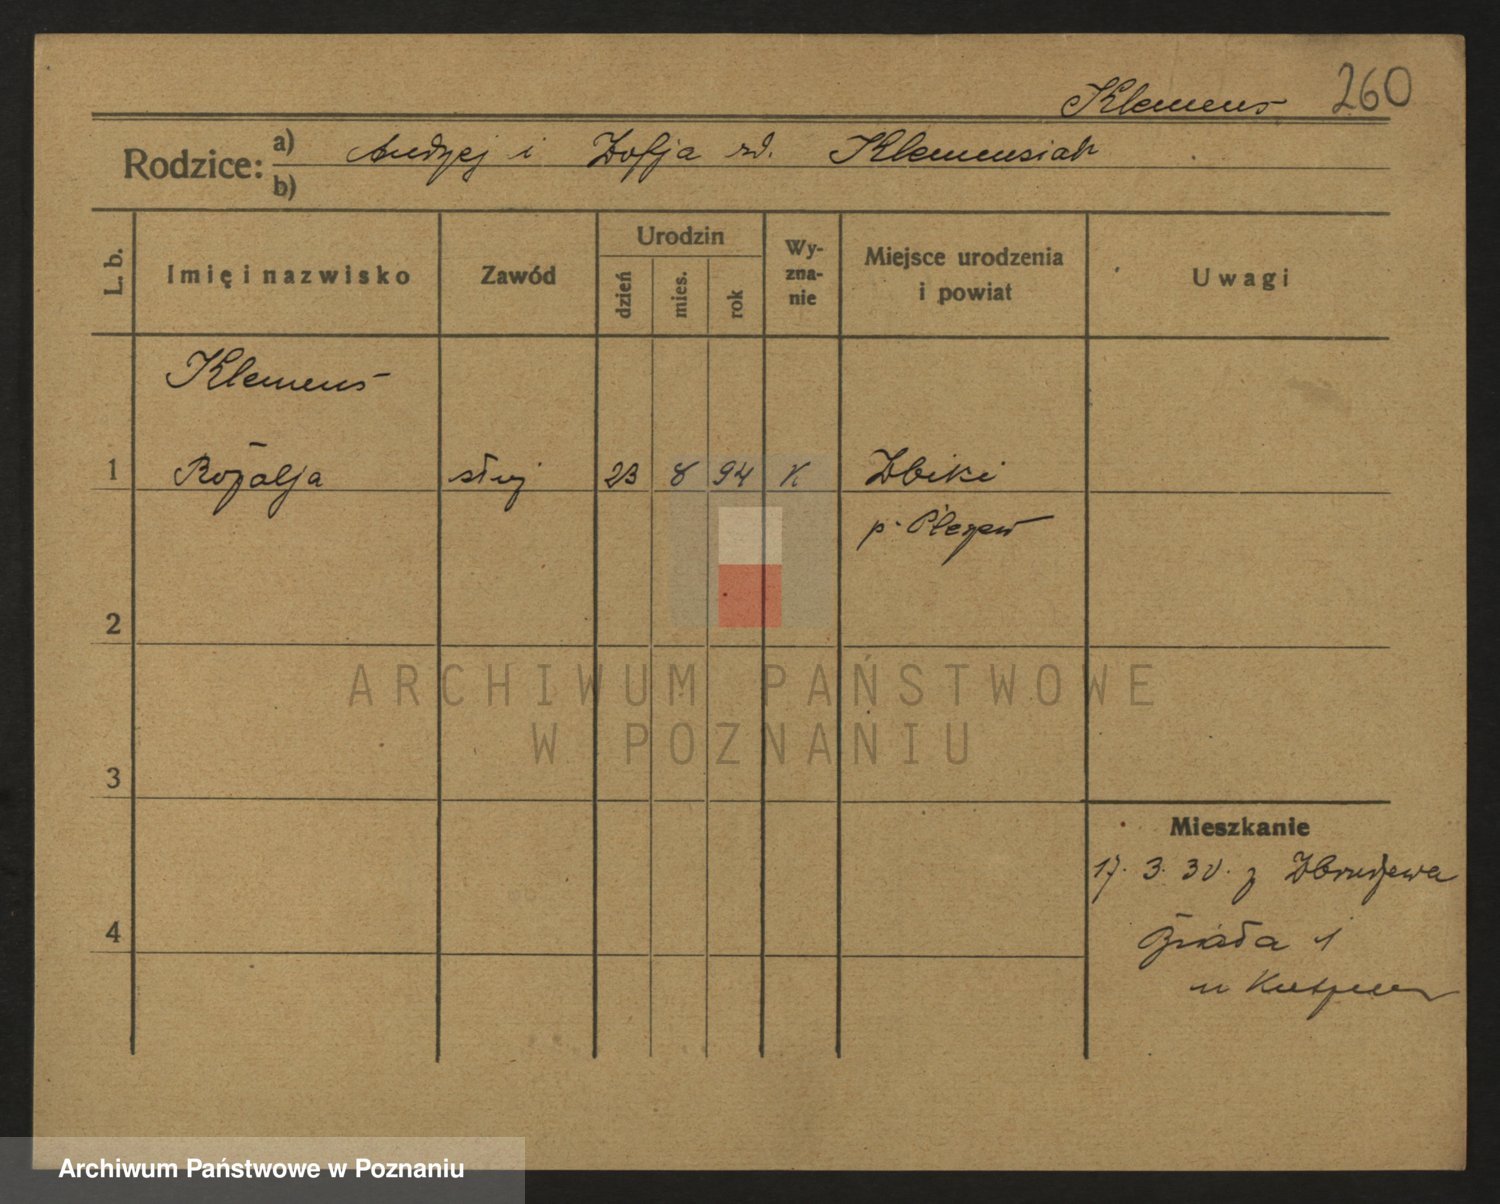 260
Klemens
Rodzice: a) Andrzej i Zofja rd. Klemensiak
b)
L. b.
Imię i nazwisko
Zawód
Urodzin
dzień
mies.
rok
Wy-
zna-
nie
Miejsce urodzenia
i powiat
Uwagi
Klemens
1 Rozalja służ 23 8 94 K Zbiki
p. Pleszew
2
ARCHIWUM PAŃSTWOWE
W POZNANIU
3
Mieszkanie
17. 3. 30. z
4
Biała 1
u
Archiwum Państwowe w Poznaniu